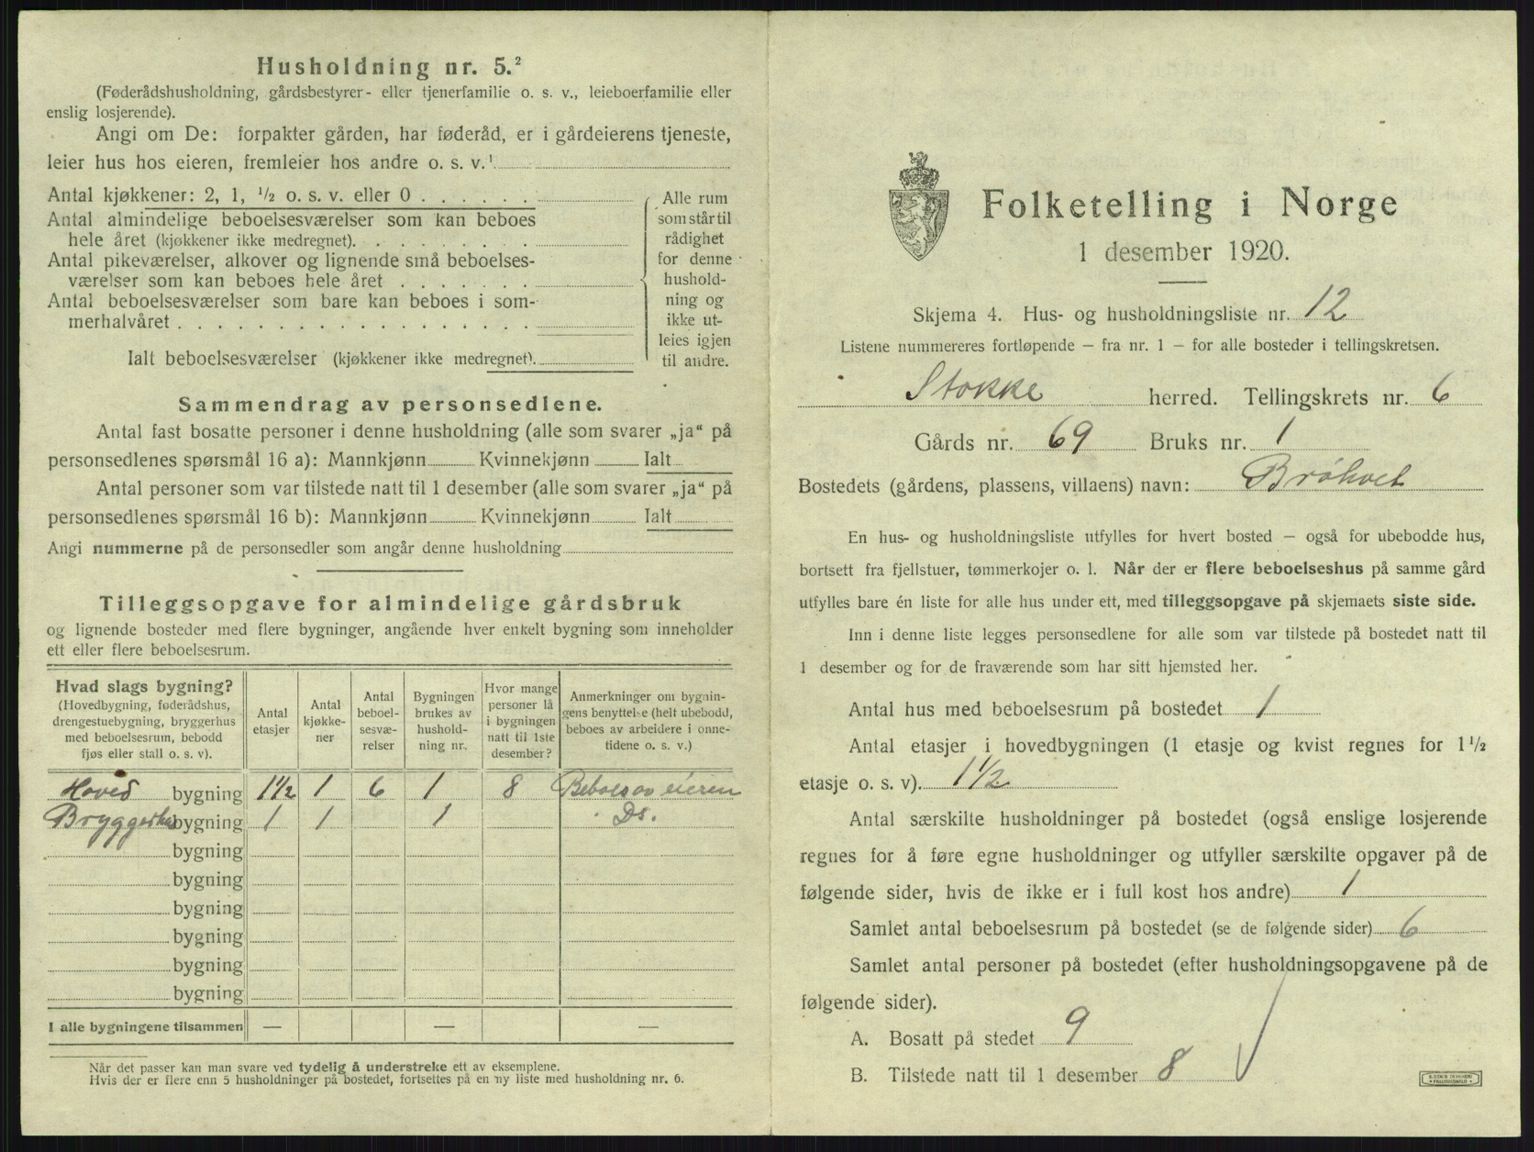 Husholdning nr. 5.²
(Føderådshusholdning, gårdsbestyrer- eller tjenerfamilie o. s. v., leieboerfamilie eller
enslig losjerende).
Angi om De: forpakter gården, har føderåd, er i gårdeierens tjeneste,
leier hus hos eieren, fremleier hos andre o. s. v.¹
Antal kjøkkener: 2, 1, ½ o. s. v. eller 0 . . . . . .
Antal almindelige beboelsesværelser som kan beboes
hele året (kjøkkener ikke medregnet). . . . . . . . .
Antal pikeværelser, alkover og lignende små beboelses-
værelser som kan beboes hele året . . . . . . .
Antal beboelsesværelser som bare kan beboes i som-
merhalvåret . . . . . . . . . . . . . . . . .
Ialt beboelsesværelser (kjøkkener ikke medregnet).
Alle rum
som står til
rådighet
for denne
hushold-
ning og
ikke ut-
leies igjen
til andre.
Sammendrag av personsedlene.
Antal fast bosatte personer i denne husholdning (alle som svarer „ja“ på
personsedlenes spørsmål 16 a): Mannkjønn Kvinnekjønn Ialt
Antal personer som var tilstede natt til 1 desember (alle som svarer „ja“ på
personsedlenes spørsmål 16 b): Mannkjønn Kvinnekjønn Ialt
Angi nummerne på de personsedler som angår denne husholdning
Tilleggsopgave for almindelige gårdsbruk
og lignende bosteder med flere bygninger, angående hver enkelt bygning som inneholder
ett eller flere beboelsesrum.
Hvad slags bygning?
(Hovedbygning, føderådshus,
drengestuebygning, bryggerhus
med beboelsesrum, bebodd
fjøs eller stall o. s. v).
Antal
etasjer
Antal
kjøkke-
ner
Antal
beboel-
sesvæ-
relser
Bygningen
brukes av
hushold-
ning nr.
Hvor mange
personer lå
i bygningen
natt til 1ste
desember?
Anmerkninger om bygnin-
gens benyttelse (helt ubebodd,
beboes av arbeidere i onne-
tidene o. s. v.)
Hoved bygning 1½ 1 6 1 8 Beboes av eieren
Bryggerhus bygning 1 1 1 Ds.
bygning
bygning
bygning
bygning
bygning
bygning
I alle bygningene tilsammen — — —
Når det passer kan man svare ved tydelig å understreke ett av eksemplene.
Hvis der er flere enn 5 husholdninger på bostedet, fortsettes på en ny liste med husholdning nr. 6.
Folketelling i Norge
1 desember 1920.
Skjema 4. Hus- og husholdningsliste nr. 12
Listene nummereres fortløpende – fra nr. 1 – for alle bosteder i tellingskretsen.
Stokke herred. Tellingskrets nr. 6
Gårds nr. 69 Bruks nr. 1
Bostedets (gårdens, plassens, villaens) navn: Bråhvet
En hus- og husholdningsliste utfylles for hvert bosted – også for ubebodde hus,
bortsett fra fjellstuer, tømmerkojer o. l. Når der er flere beboelseshus på samme gård
utfylles bare én liste for alle hus under ett, med tilleggsopgave på skjemaets siste side.
Inn i denne liste legges personsedlene for alle som var tilstede på bostedet natt til
1 desember og for de fraværende som har sitt hjemsted her.
Antal hus med beboelsesrum på bostedet 1
Antal etasjer i hovedbygningen (1 etasje og kvist regnes for 1½
etasje o. s. v). 1½
Antal særskilte husholdninger på bostedet (også enslige losjerende
regnes for å føre egne husholdninger og utfyller særskilte opgaver på de
følgende sider, hvis de ikke er i full kost hos andre) 1
Samlet antal beboelsesrum på bostedet (se de følgende sider) 6
Samlet antal personer på bostedet (efter husholdningsopgavene på de
følgende sider).
A. Bosatt på stedet 9
B. Tilstede natt til 1 desember 8